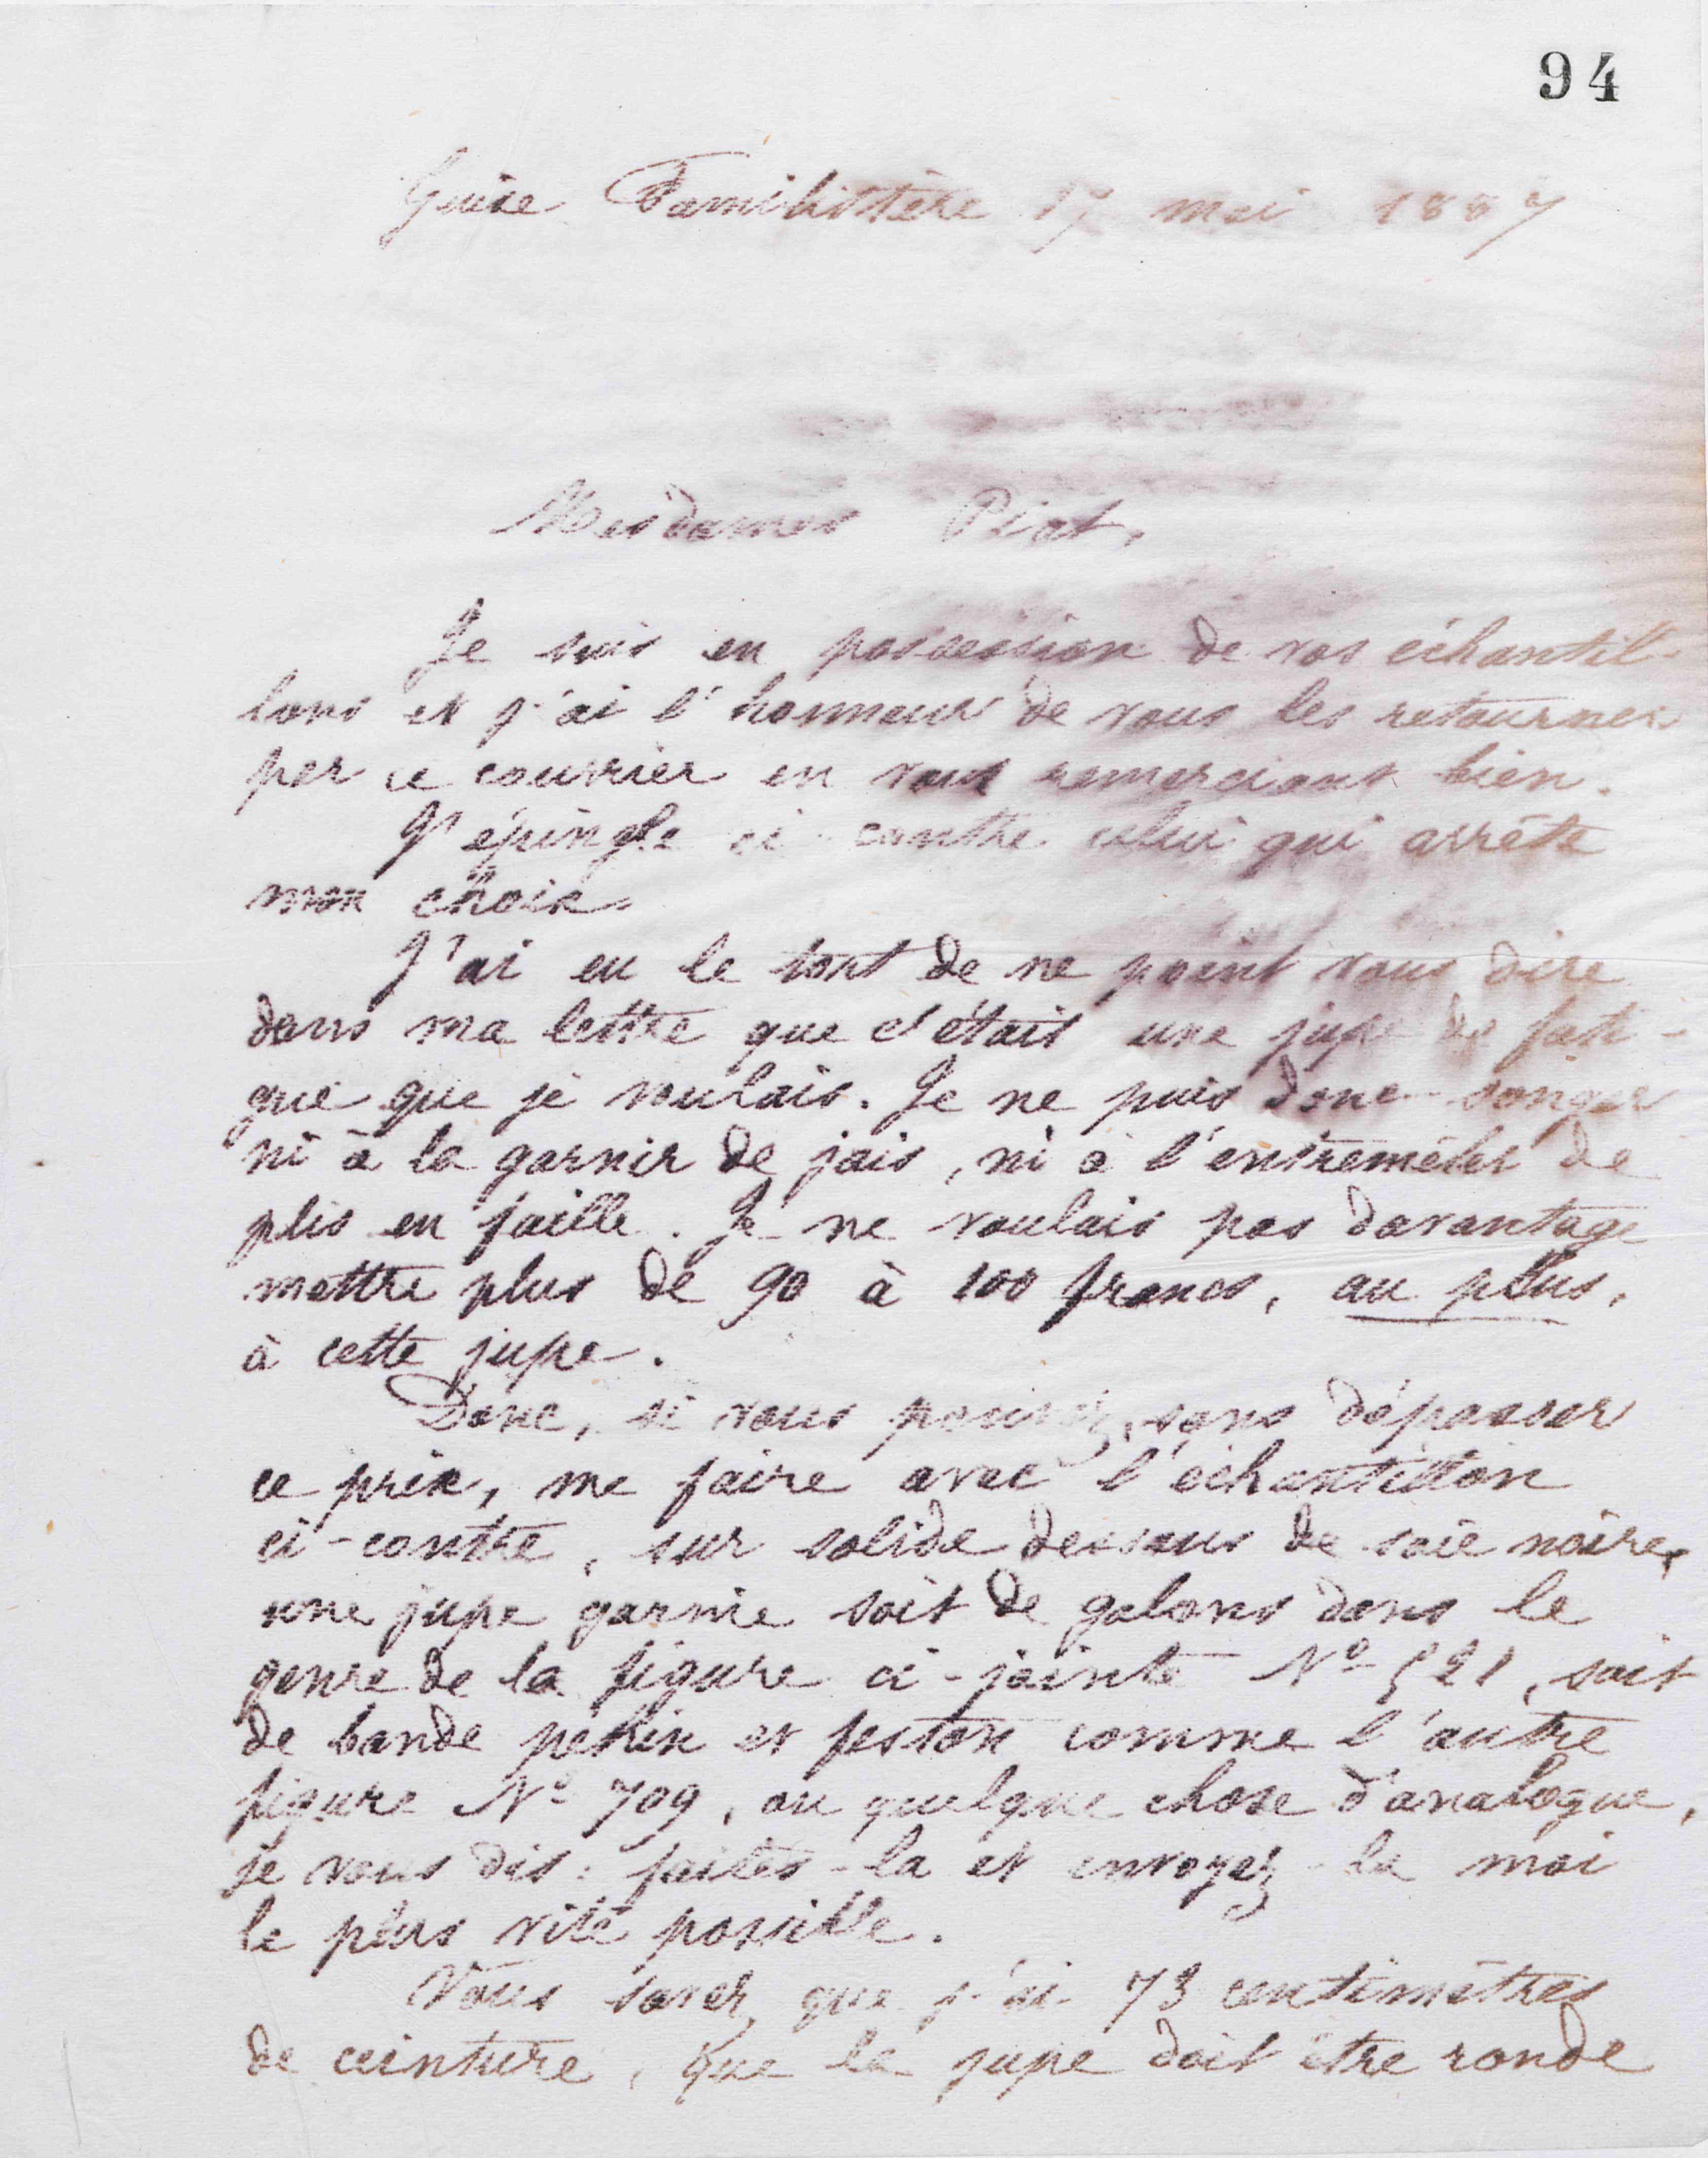 94
Guise Familistère 17 mai 1887
Mesdames Piat,
Je suis en possession de vos échantil-
lons et j'ai l'honneur de vous les retourner
par ce courrier en vous remerciant bien.
J'épingle ci-contre celui qui arrête
mon choix.
J'ai eu le tort de ne point vous dire
dans ma lettre que c'était une jupe de fati-
gue que je voulais. Je ne puis donc songer
ni à la garnir de jais, ni à l'entremêler de
plis en faille. Je ne voulais pas davantage
mettre plus de 90 à 100 francs, au plus,
à cette jupe.
Donc, si vous pouvez, sans dépasser
ce prix, me faire avec l'échantillon
ci-contre, sur solide dessous de soie noire,
une jupe garnie soit de galons dans le
genre de la figure ci-jointe N° 521, soit
de bande pékin et feston comme l'autre
figure N° 709, ou quelque chose d'analogue,
je vous dis: faites-la et envoyez-la moi
le plus vite possible.
Vous savez que j'ai 73 centimètres
de ceinture, que la jupe doit être ronde